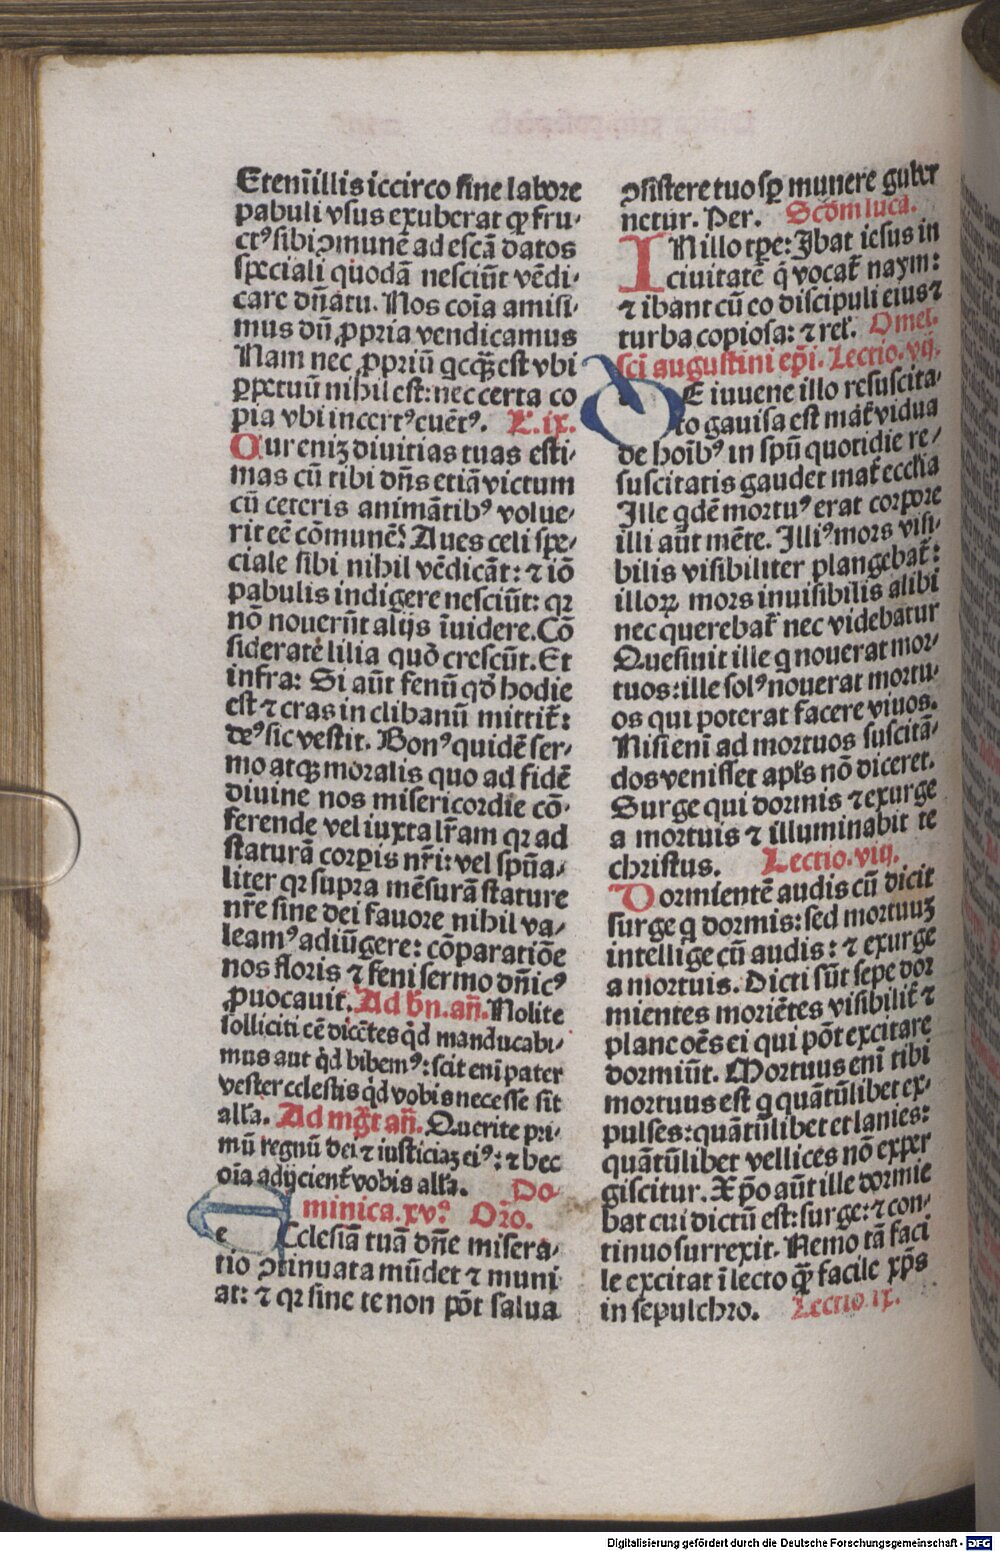 Etenī illis iccirco sine labore
pabuli vsus exuberat qꝫ fru⸗
ctꝰ sibi ꝯmunē ad escā datos
speciali quodā nesciūt vēdi⸗
care dn̄atu. Nos coīa amisi⸗
mus dū ꝓpria vendicamus
Nam nec ꝓpriū qcqꝫ est vbi
ꝑpetuū nihil est: nec certa co
pia vbi incertꝰ euētꝰ. L. ix.
Cur enīꝫ diuitias tuas esti⸗
mas cū tibi dn̄s etiā victum
cū ceteris animātibꝰ volue⸗
rit eē cōmunē? Aues celi spe⸗
ciale sibi nihil vēdicāt: ⁊ iō
pabulis indigere nesciūt: qꝛ
nō nouerūt alijs īuidere. Cō
siderate lilia quō crescūt. Et
infra: Si aūt fenū qd̄ hodie
est ⁊ cras in clibanū mittit̄:
deꝰ sic vestit. Bonꝰ quidē ser⸗
mo atqꝫ moralis quo ad fidē
diuine nos misericordie cō⸗
ferende vel iuxta lr̄am qꝛ ad
staturā corꝑis nr̄i: vel spūa⸗
liter qꝛ supra mēsurā stature
nr̄e sine dei fauore nihil va⸗
leamꝰ adiūgere: cōparatiōe
nos floris ⁊ feni sermo dn̄icꝰ
ꝓuocauit. Ad bn̄. an̄. Nolite
solliciti eē dicētes qd̄ manducabi⸗
mus aut qd̄ bibemꝰ: scit enī pater
vester celestis qd̄ vobis necesse sit
all'a. Ad mḡt an̄. Querite pri⸗
mū regnū dei ⁊ iusticiaꝫ eiꝰ: ⁊ hec
oīa adijcient̄ vobis all'a. Do⸗
minica. xvᵃ. Or̄o.
eEcclesiā tuā dn̄e misera⸗
tio ꝯtinuata mūdet ⁊ muni
at: ⁊ qꝛ sine te non pōt salua
ꝯsistere tuo sꝑ munere guber
netur. Per. Scd̄m luca.
IN illo tꝑe: Ibat iesus in
ciuitatē q̄ vocat̄ naym:
⁊ ibant cū eo discipuli eius ⁊
turba copiosa: ⁊ rel'. Omel.
sci augustini ep̄i. Lectio. vij.
DE iuuene illo resuscita⸗
to gauisa est mat̄ vidua
de hoībꝰ in spū quotidie re⸗
suscitatis gaudet mat̄ eccl̄ia
Ille qdē mortuꝰ erat corpore
illi aūt mēte. Illiꝰ mors visi⸗
bilis visibiliter plangebat̄:
illoꝝ mors inuisibilis alibi
nec querebat̄ nec videbatur
Quesiuit ille q nouerat mor⸗
tuos: ille solꝰ nouerat mortu⸗
os qui poterat facere viuos.
Nisi enī ad mortuos suscitā⸗
dos venisset apl's nō diceret.
Surge qui dormis ⁊ exurge
a mortuis ⁊ illuminabit te
christus. Lectio. viij.
Dormientē audis cū dicit
surge q dormis: sed mortuuꝫ
intellige cū audis: ⁊ exurge
a mortuis. Dicti sūt sepe dor
mientes moriētes visibilit̄ ⁊
plane oēs ei qui pōt excitare
dormiūt. Mortuus enī tibi
mortuus est q quātūlibet ex⸗
pulses: quātūlibet et lanies:
quātūlibet vellices nō exper
giscitur. Xp̄o aūt ille dormie
bat cui dictū est: surge: ⁊ con⸗
tinuo surrexit. Nemo tā faci
le excitat ī lecto qꝫ facile xp̄s
in sepulchro. Lectio. ix.
Digitalisierung gefördert durch die Deutsche Forschungsgemeinschaft - DFG